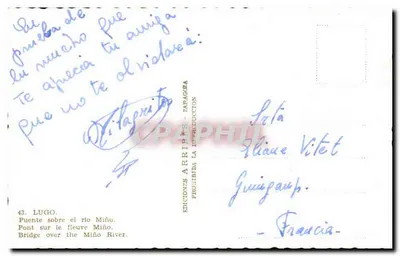 En
prueba de
lo mucho que
Te aprecia tu amiga
que no te olvidará:
Milagritos
43. LUGO.
Puente sobre el río Miño.
Pont sur le fleuve Miño.
Bridge over the Miño River.
EDICIONES ARRIBAS - ZARAGOZA
PROHIBIDA LA REPRODUCCION
Srta
Eliane Vitet
Guingamp.
- Francia -